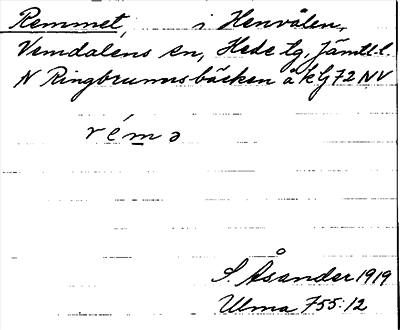 Remmet, i Henvålen,
Vemdalens sn, Hede tg, Jämtl.l.
N Ringbrunnsbäcken å kG72NV
rémə
S. Åsander 1919
Ulma 755:12